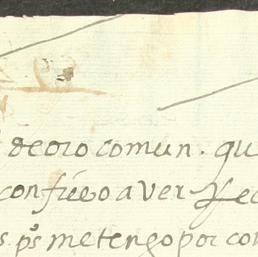 de oro comun. qu
confieso aver Rec
s. pºs me tengo por con